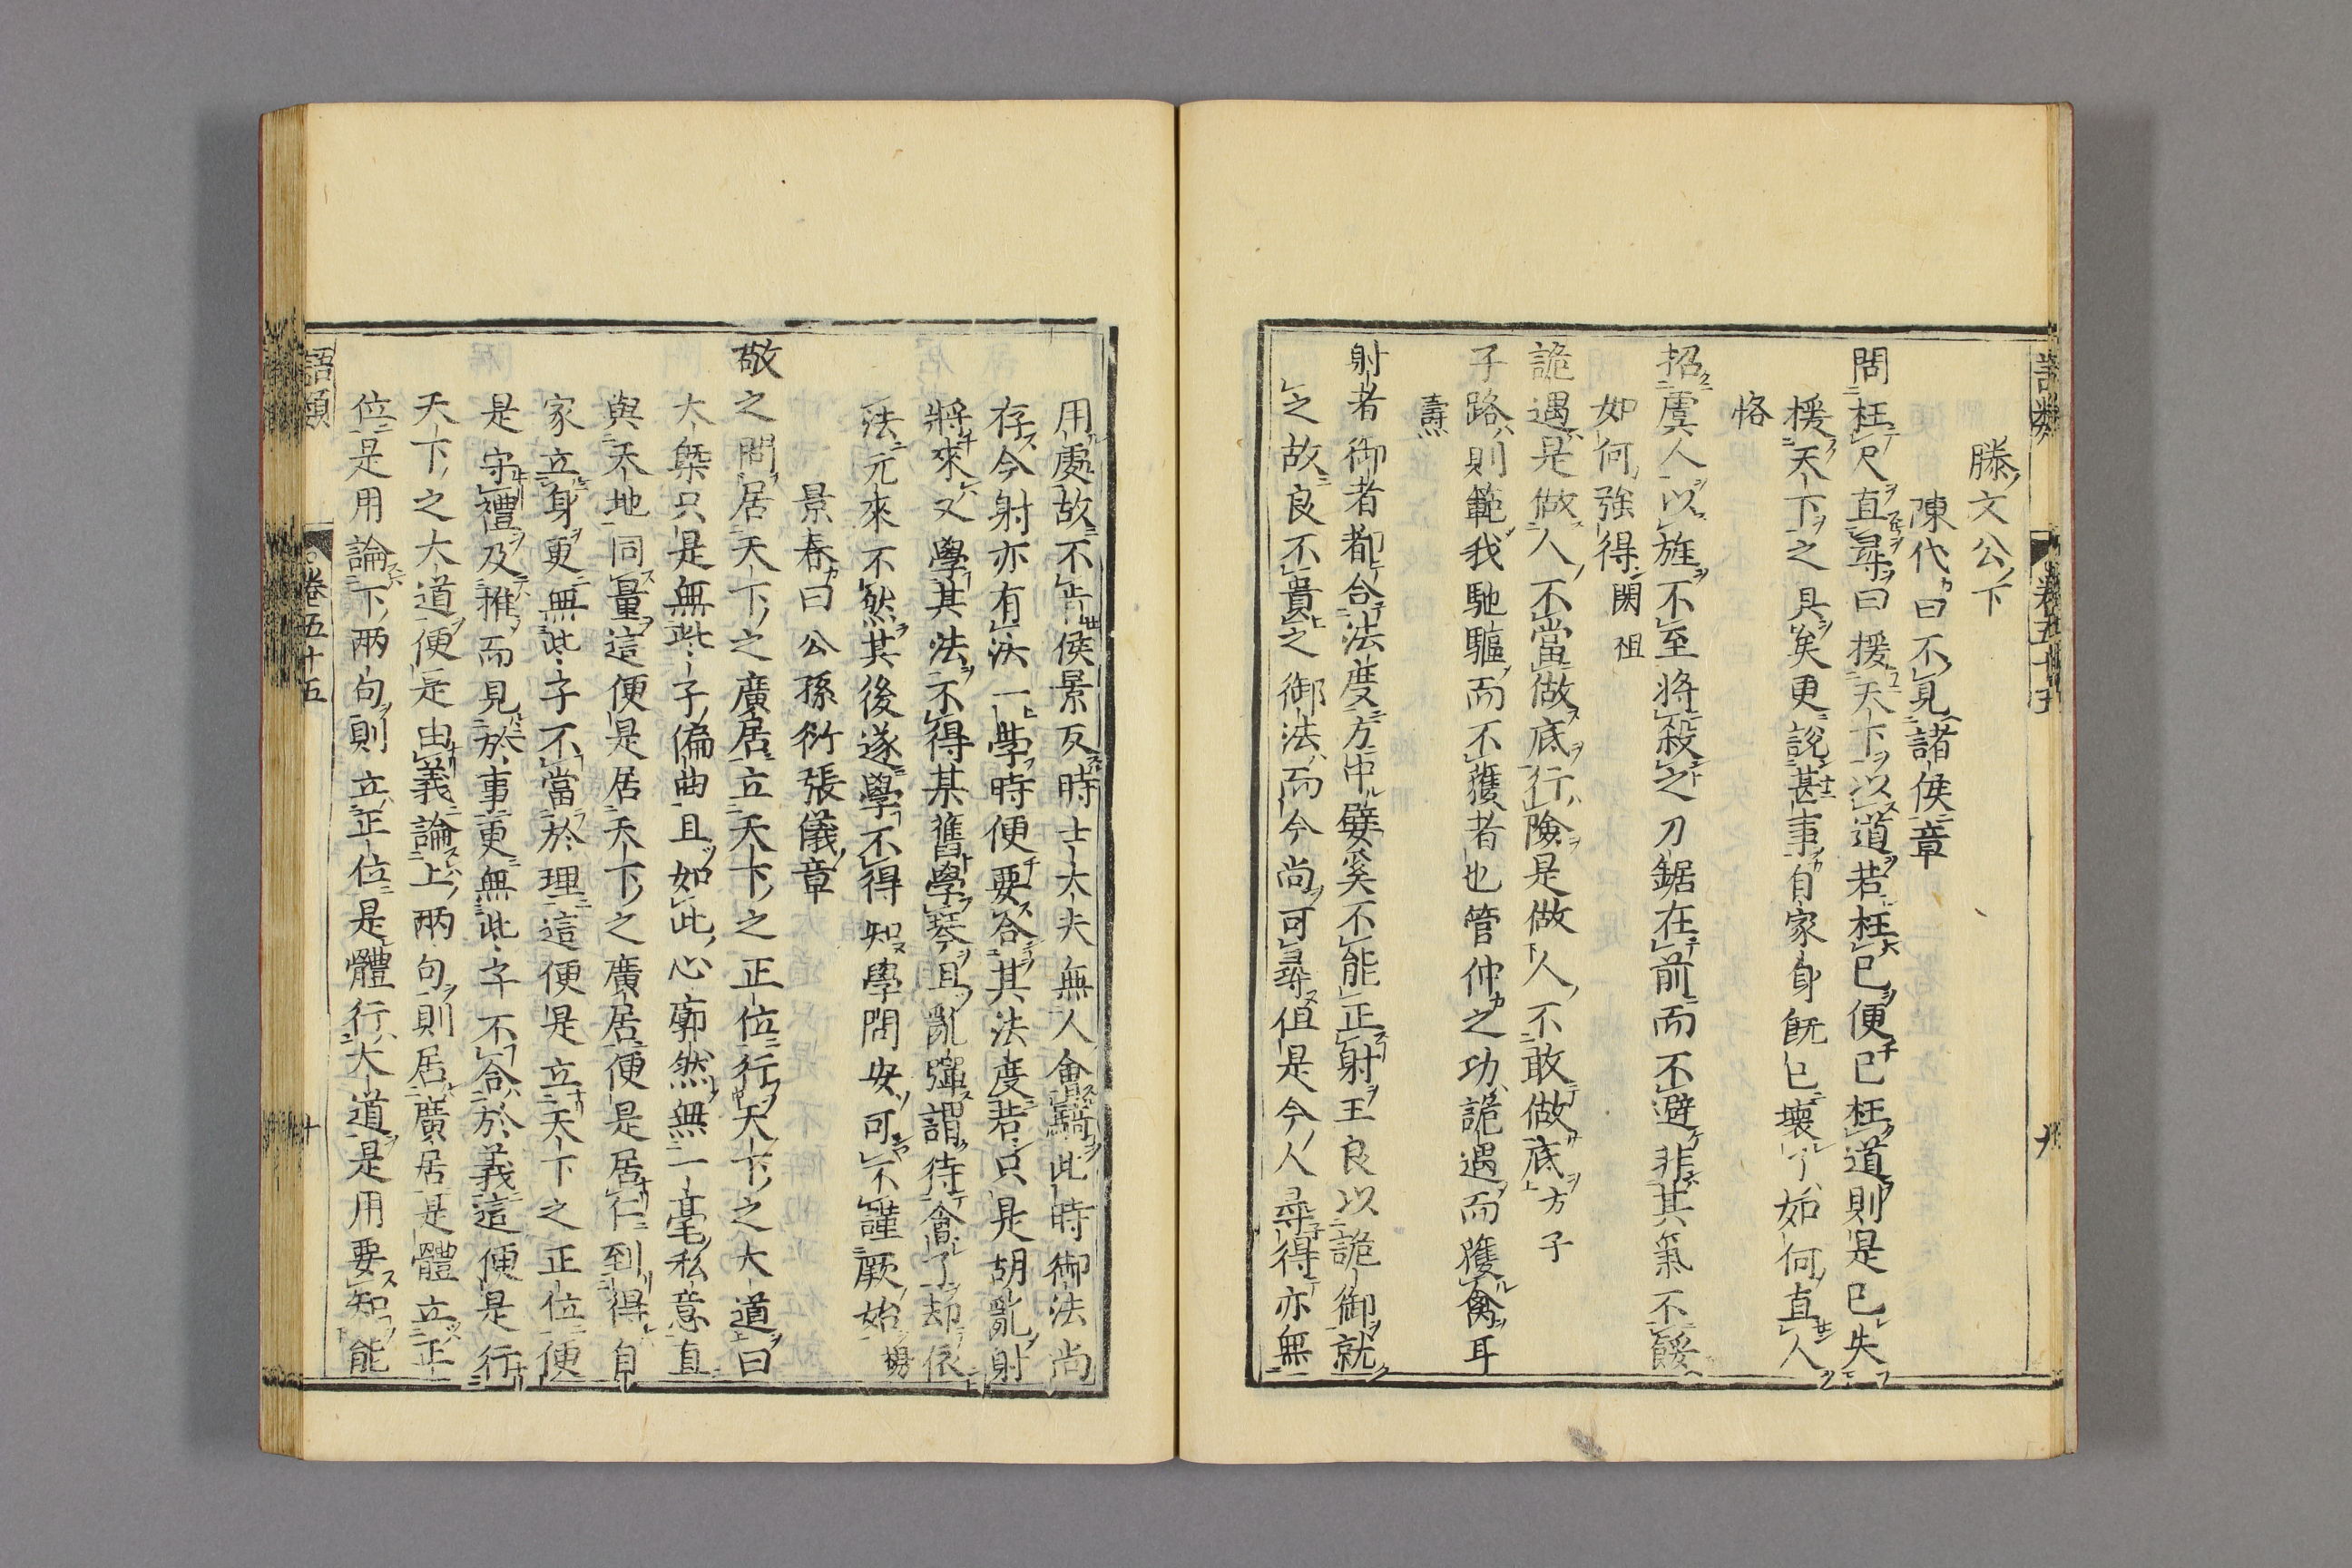 語類 卷五十五 九
滕文公下
陳代曰不見諸侯章
問枉尺直尋曰援天下以道若枉已便已枉道則是已失
援天下之具矣更說甚事自家身既已壞了如何直人
恪
招虞人以旌不至將殺之刀鋸在前而不避非其氣不餒
如何強得閎祖
詭遇是做人不當做底行險是做人不敢做底方子
子路則範我馳驅而不獲者也管仲之功詭遇而獲禽耳
燾
射者御者都合法度方中嬖奚不能正射王良以詭御就
之故良不貴之御法而今尚可尋但是今人尋得亦無
用處故不肯侯景反時士大夫無人會騎此時御法尚
存今射亦有法一學時便要合其法度若只是胡亂射
將來又學其法不得某舊學琴且亂彈謂待會了却依
法元來不然其後遂學不得知學問安可不謹厥始㽦
景春曰公孫衍張儀章
敬之問居天下之廣居立天下之正位行天下之大道曰
大槩只是無些子偏曲且如此心廓然無一毫私意直
與天地同量這便是居天下之廣居便是居仁到得自
家立身更無些子不當於理這便是立天下之正位便
是守禮及推而見於事更無些子不合於義這便是行
天下之大道便是由義論上兩句則居廣居是體立正
位是用論下兩句則立正位是體行大道是用要知能
語類 卷五十五 十